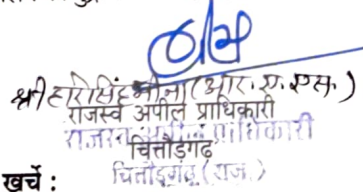 श्री हरिसिंह मीना (आर. ए. एस.)
राजस्व अपील प्राधिकारी
राजस्व अपील प्राधिकारी
चित्तौड़गढ़
चित्तौड़गढ़ (राज.)
खर्चे :